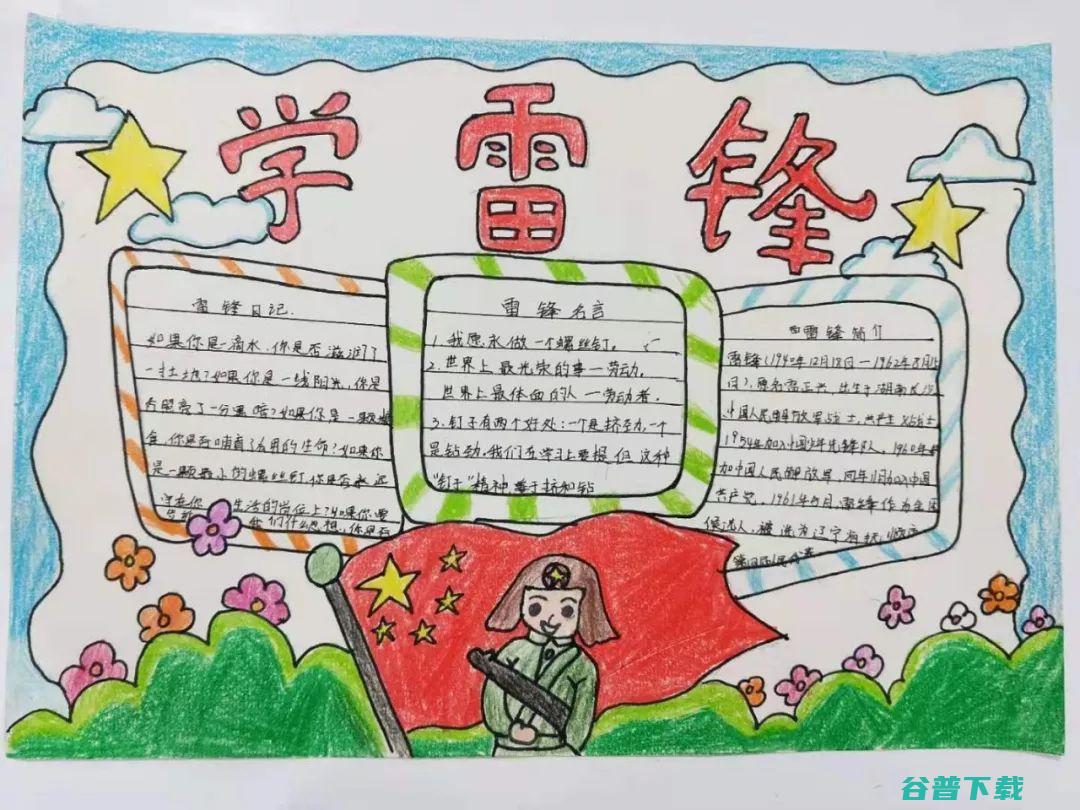 学雷锋
雷锋日记.
如果你是一滴水,你是否滋润了
一寸土地?如果你是一线阳光,你是
否照亮了一分黑暗?如果你是一颗粮
食,你是否哺育了有用的生命?如果你
是一颗最小的螺丝钉,你是否永远
守在你 生活的岗位上?如果你要
我们什么思想,你是否
雷锋名言
1.我愿永做一个螺丝钉。
2.世界上最光荣的事一劳动.
世界上最体面的人一劳动者.
3.钉子有两个好处:一个是挤劲,一个
是钻劲.我们在学习上要提倡这种
"钉子"精神,善于挤和钻
雷锋简介
雷锋(1940年12月18日—1962年8月15
日),原名雷正兴,出生于湖南长沙,
中国人民解放军战士,共产主义战士
1954年加入中国少年先锋队,1960年参
加中国人民解放军,同年11月加入中国
共产党.1961年5月,雷锋作为全团
候选人,被选为辽宁省抚顺市
第四届人民代表
谷普下载